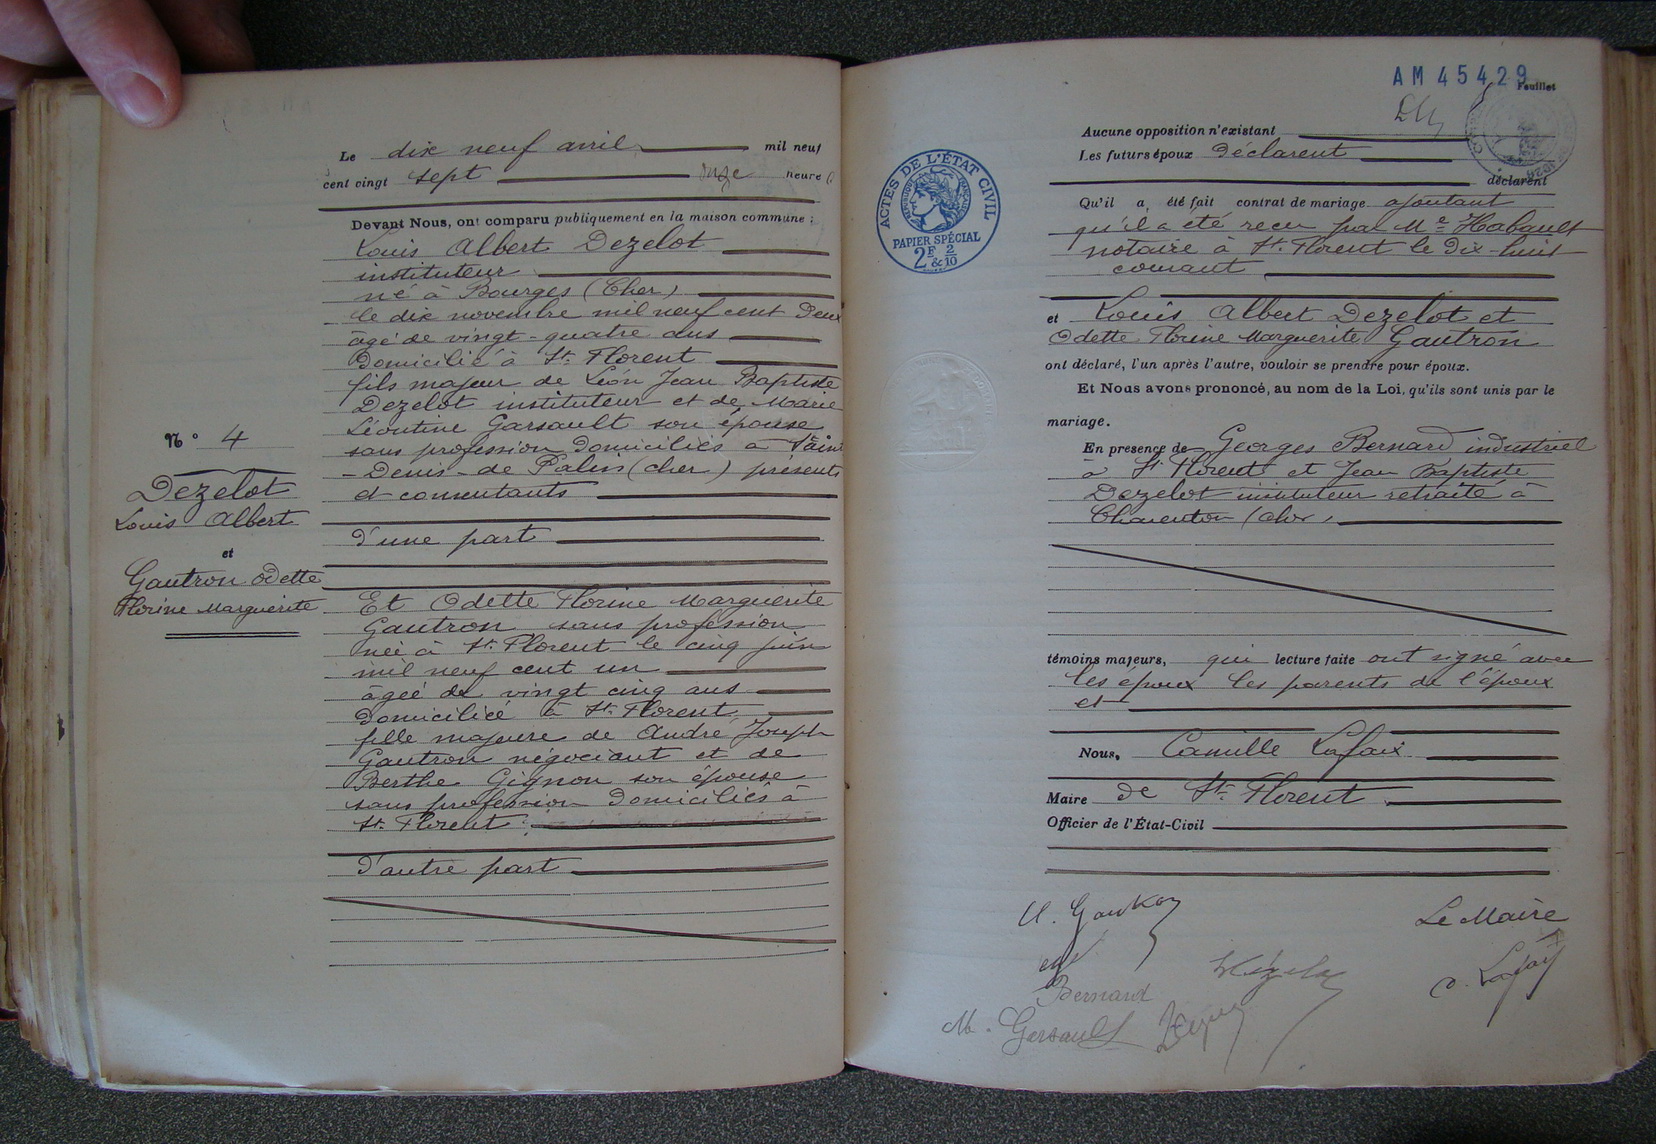 N° 4
Dezelot
Louis Albert
et
Gautron Odette
Florine Marguerite
Le dix neuf avril mil neuf
cent vingt sept onze heures
Devant Nous, ont comparu publiquement en la maison commune :
Louis Albert Dezelot
instituteur
né à Bourges (Cher)
le dix novembre mil neuf cent deux
âgé de vingt-quatre ans
domicilié à St. Florent
fils majeur de Léon Jean Baptiste
Dezelot instituteur et de Marie
Léontine Garsault son épouse
sans profession domiciliés à Saint
-Denis-de Palin (cher) présents
et consentants
d'une part
Et Odette Florine Marguerite
Gautron sans profession
née à St. Florent le cinq juin
mil neuf cent un
âgée de vingt cinq ans
domiciliée à St. Florent
fille majeure de André Joseph
Gautron négociant et de
Berthe Gignon son épouse
sans profession domiciliés à
St. Florent
d'autre part
AM 45429
Feuillet
ACTES DE L'ÉTAT CIVIL
RÉPUBLIQUE FRANÇAISE
PAPIER SPÉCIAL
2F & 2/10
Aucune opposition n'existant
Les futurs époux déclarent
déclarent
Qu'il a été fait contrat de mariage ajoutant
qu'il a été reçu par Me Habault
notaire à St. Florent le dix-huit
courant
et Louis Albert Dezelot et
Odette Florine Marguerite Gautron
ont déclaré, l'un après l'autre, vouloir se prendre pour époux.
Et Nous avons prononcé, au nom de la Loi, qu'ils sont unis par le
mariage.
En presence de Georges Bernard industriel
à St. Florent et Jean Baptiste
Dezelot instituteur retraité à
Charenton (cher)
témoins majeurs, qui lecture faite ont signé avec
les époux les parents de l'époux
et
Nous, Camille Lafaix
Maire de St. Florent
Officier de l'État-Civil
Gautron
Le Maire
Bernard
C. Lafaix
M. Garsault